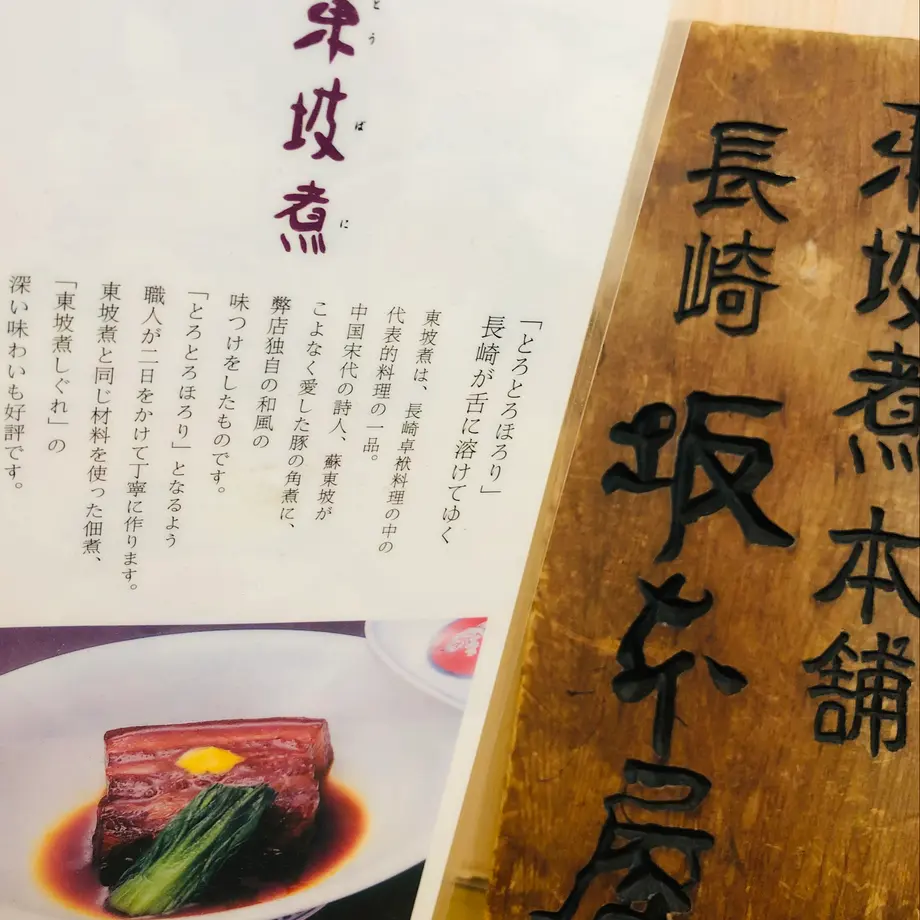 東坡煮
とうばに
「とろとろほろり」
長崎が舌に溶けてゆく
東坡煮は、長崎卓袱料理の中の
代表的料理の一品。
中国宋代の詩人、蘇東坡が
こよなく愛した豚の角煮に、
弊店独自の和風の
味つけをしたものです。
「とろとろほろり」となるよう
職人が二日をかけて丁寧に作ります。
東坡煮と同じ材料を使った佃煮、
「東坡煮しぐれ」の
深い味わいも好評です。
東坡煮本舗
長崎
坂本屋